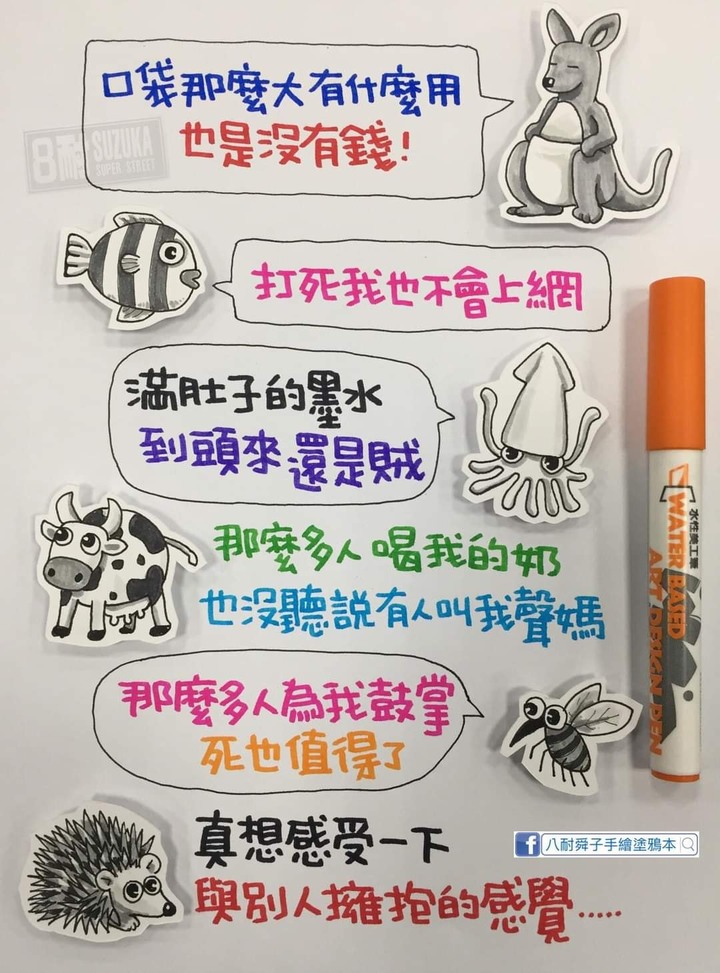 口袋那麼大有什麼用
也是沒有錢!
8耐 SUZUKA
SUPER STREET
打死我也不會上網
滿肚子的墨水
到頭來還是賊
那麼多人喝我的奶
也沒聽說有人叫我聲媽
那麼多人為我鼓掌
死也值得了
真想感受一下
與別人擁抱的感覺.....
f 八耐舜子手繪塗鴉本
水性美工筆
WATER BASED
ART DESIGN PEN